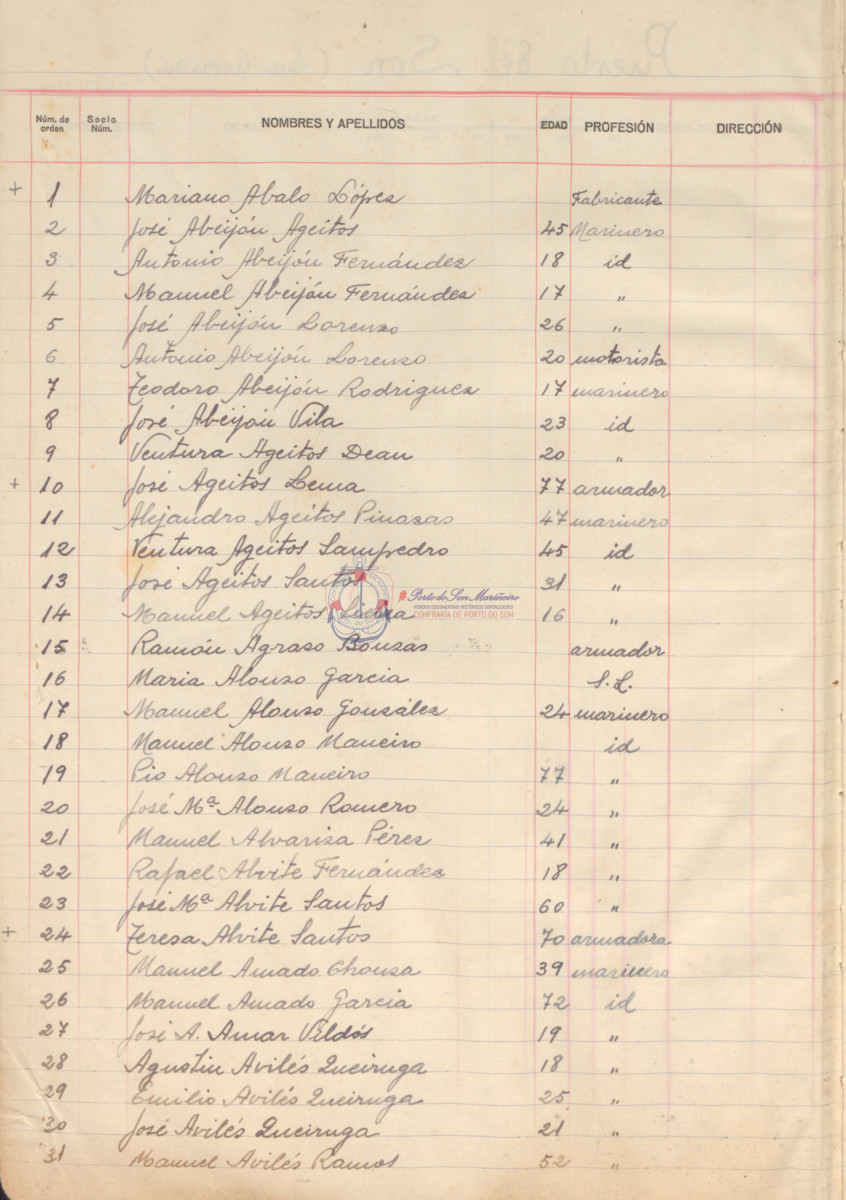 Núm. de orden Socio Núm. NOMBRES Y APELLIDOS EDAD PROFESIÓN DIRECCIÓN
+ 1 Mariano Abalo López Fabricante
2 José Abeijón Ageitos 45 Marinero
3 Antonio Abeijón Fernández 18 id
4 Manuel Abeijón Fernández 17 "
5 José Abeijón Lorenzo 26 "
6 Antonio Abeijón Lorenzo 20 motorista
7 Teodoro Abeijón Rodriguez 17 marinero
8 José Abeijón Vila 23 id
9 Ventura Ageitos Dean 20 "
+ 10 José Ageitos Lema 77 armador
11 Alejandro Ageitos Pinazas 47 marinero
12 Ventura Ageitos Sampedro 45 id
13 José Ageitos Santos 31 "
Porto do Son Mariñeiro
FONDOS DOCUMENTAIS HISTÓRICOS DIXITALIZADOS
CONFRARÍA DE PORTO DO SON
14 Manuel Ageitos 16 "
15 Ramón Agraso Bouzas armador
16 Maria Alonso Garcia S.L.
17 Manuel Alonso González 24 marinero
18 Manuel Alonso Maneiro id
19 Pio Alonso Maneiro 77 "
20 José Mª Alonso Romero 24 "
21 Manuel Alvariza Pérez 41 "
22 Rafael Alvite Fernández 18 "
23 José Mª Alvite Santos 60 "
+ 24 Teresa Alvite Santos 70 armadora
25 Manuel Amado Chouza 39 marinero
26 Manuel Amado Garcia 72 id
27 José A. Amar Vildós 19 "
28 Agustin Avilés Queiruga 18 "
29 Emilio Avilés Queiruga 25 "
30 José Avilés Queiruga 21 "
31 Manuel Avilés Ramos 52 "